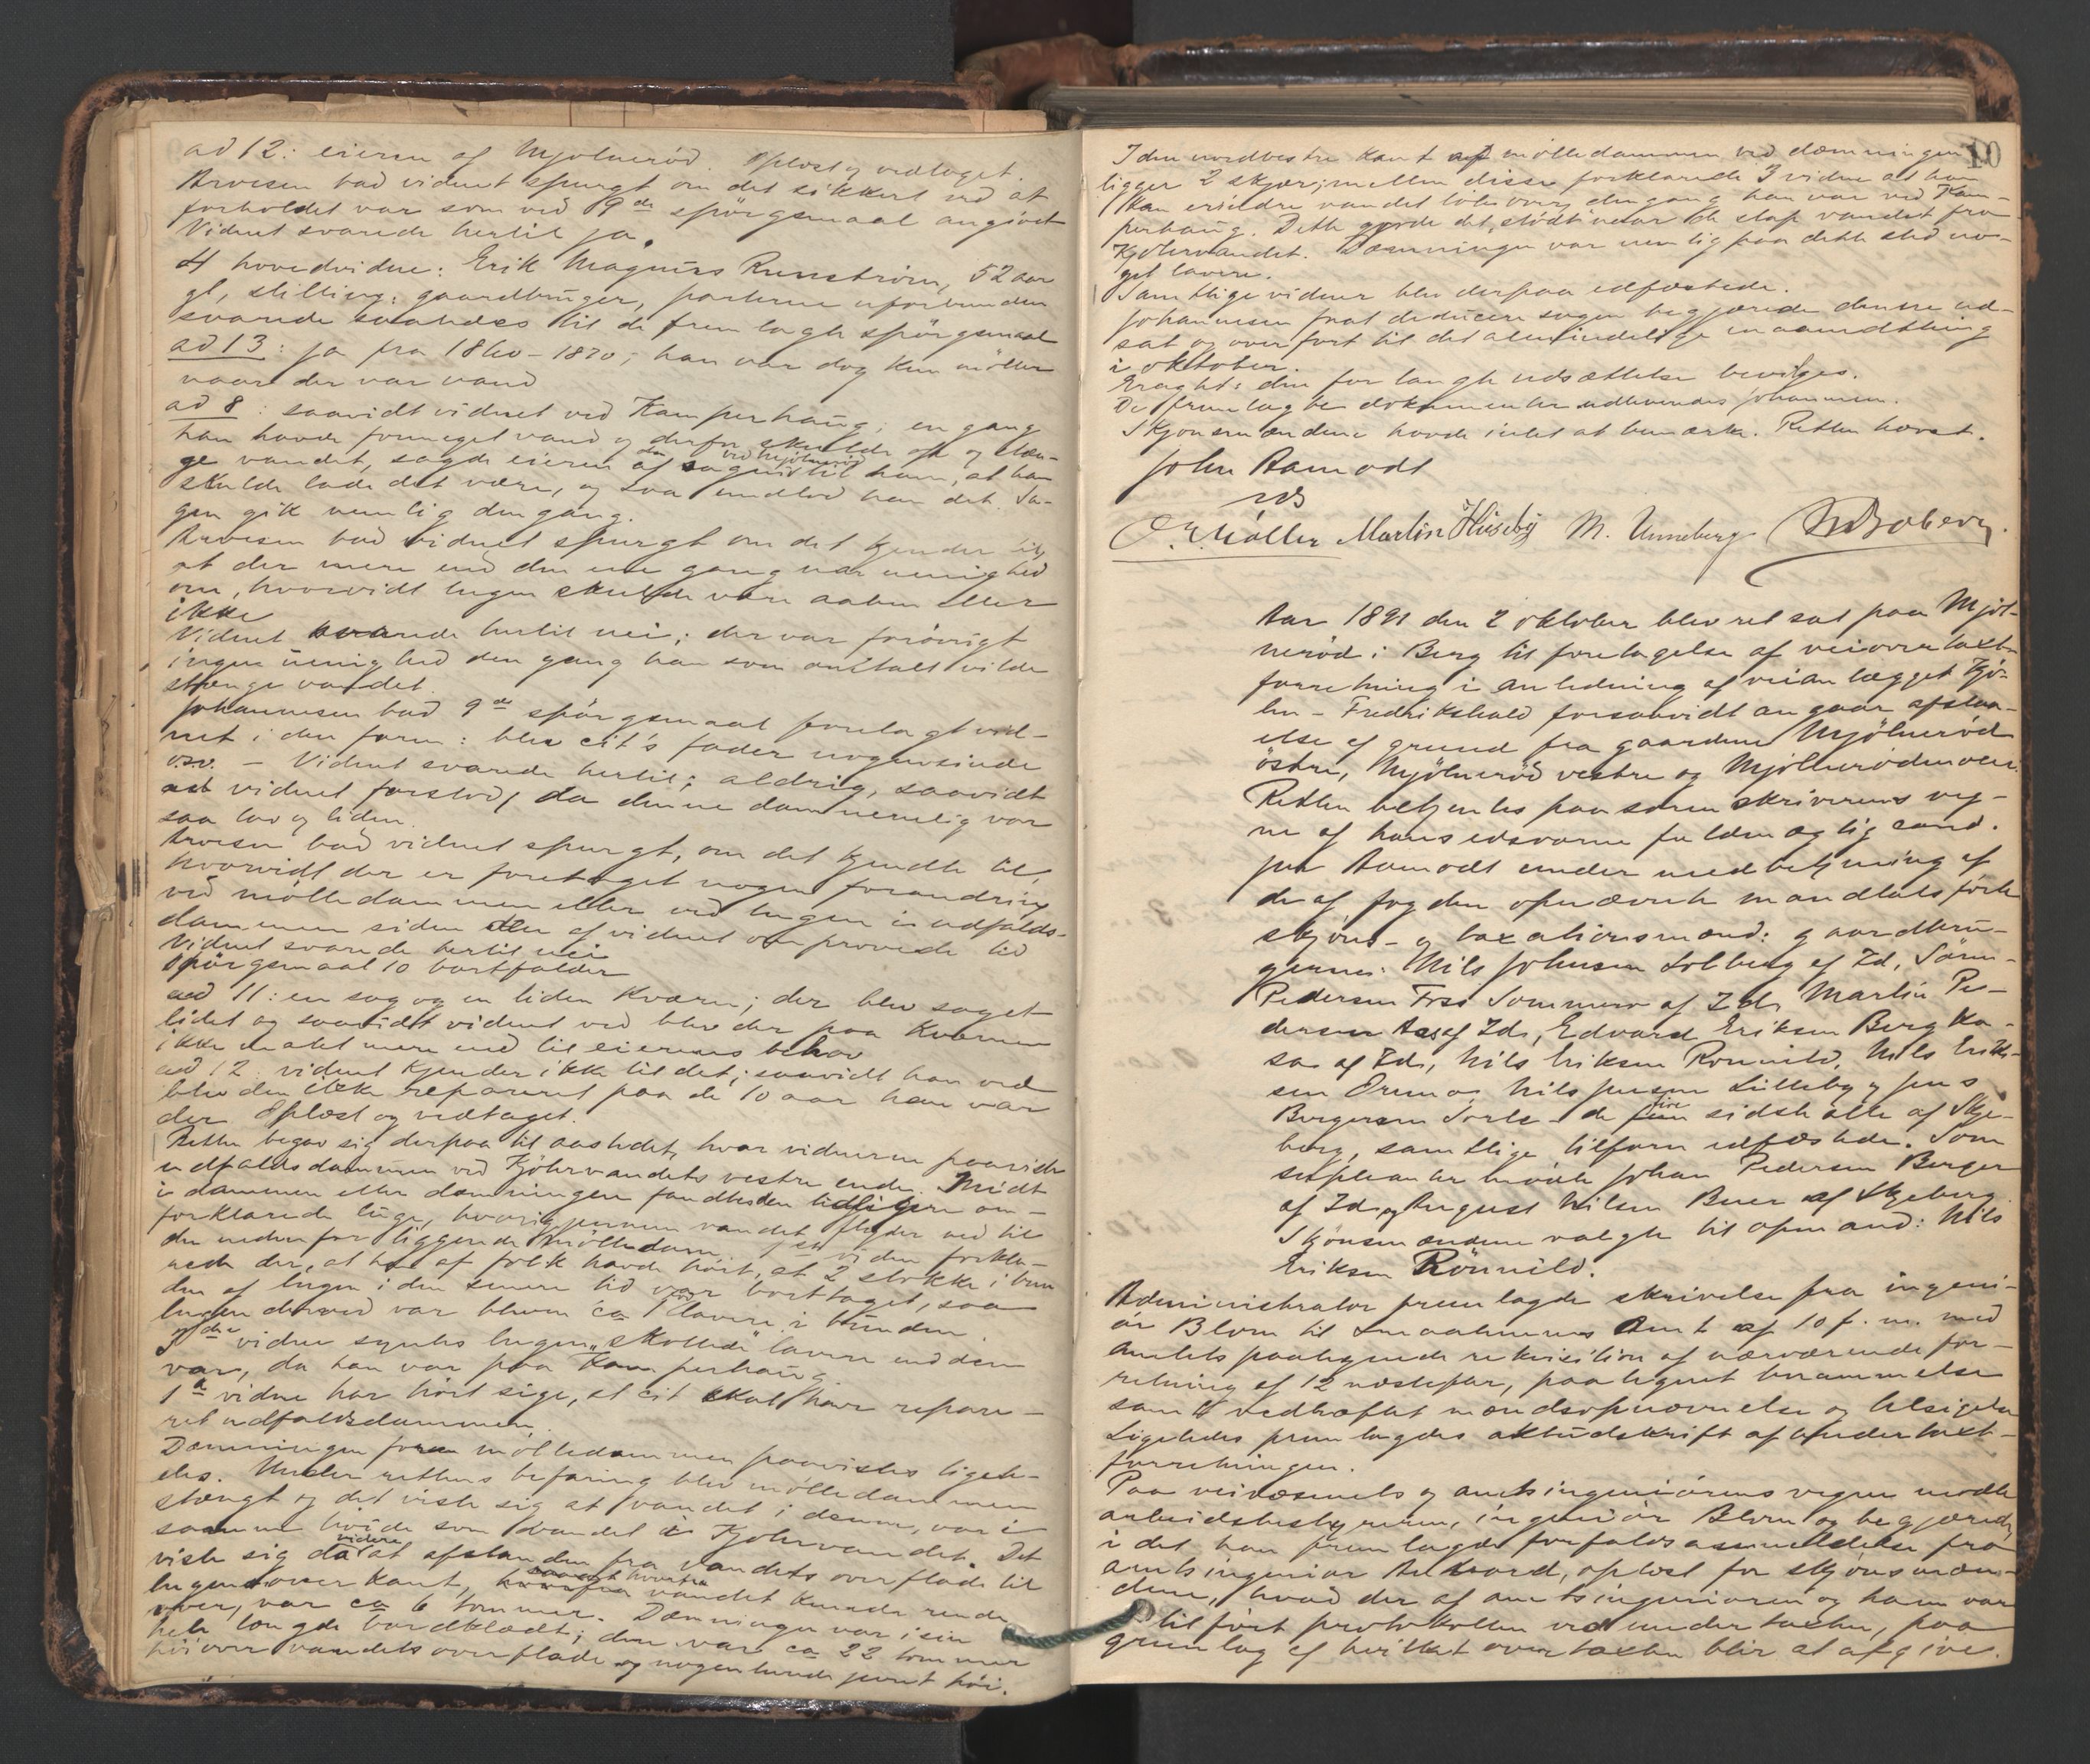 ad 12: eieren af Mjølnerød. Oplæst og vedtaget.
Arvesen bad vidnet spurgt om det sikkert ved at
forholdet var som ved 9de spörgsmaal angivet
Vidnet svarede hertil ja.
4 hovedvidne: Erik Magnus Runström, 52 aar
gl, stilling: gaardbruger, parterne uforbunden
svarede saaledes til de fremlagte spörgsmaal
ad 13: ja fra 1860-1870; han var dog kun möller
naar der var vand
ad 8: saavidt vidnet ved Kamperhaug; en gang
han havde formeget vand og derfor skulde op og stæn-
ge vandet, sagde eieren af sagen ved Mjölneröd til ham, at han
skulde lade det være, og saa undlod han det. Sa-
gen gik nemlig dengang.
Arvesen bad vidnet spurgt om det kjender til,
at der mere end den ene gang var uenighed
om, hvorvidt lugen skulde være aaben eller
ikke
Vidnet svarede hertil nei; der var forövrigt
ingen uenighed den gang han som omtalt vilde
stænge vandet.
Johannesen bad 9de spörgsmaal forelagt vid-
net i den form: blev cit's fader nogensinde
osv. - Vidnet svarede hertil; aldrig, saavidt
vidnet forstod, da denne dam nemlig var
saa lav og liden.
Arvesen bad vidnet spurgt, om det kjendte til,
hvorvidt der er foretaget nogen forandring
ved mölledammen eller ved lugen i udfalds-
dammen siden den af vidnet omprovede tid
Vidnet svarede hertil nei
Spörgsmaal 10 bortfalder
ad 11: en sag og en liden kværn; der blev saget
lidet og saavidt vidnet ved blev der paa kværnen
ikke malet mere end til eierens behov
ad 12: vidnet kjender ikke til det; saavidt han ved
blev den ikke repareret paa de 10 aar han var
der. Oplæst og vedtaget.
Retten begav sig derpaa til aastedet, hvor vidnerne paaviste
udfaldsdammen ved Kjölervandets vestre ende. Midt
i dammen eller dæmningen fandtes den tidligere om-
forklarede luge, hvorigjennem vandet flyder ned til
den nedenfor liggende mölledam. vidne forkla-
rede der, at han af folk havde hört, at 2 stokke i bun
den af lugen i den senere tid var borttaget, saa
lugen derved var bleven ca 1 lavere i bunden.
3die vidne syntes lugen "skottede" lavere end den
var, da han var paa Kamperhaug
1ste vidne har hört sige, at cit skal have repare-
ret udfaldsdammen.
Dæmningen foran mölledammen paavistes ligele-
des. Under rettens befaring blev mölledammen
stængt og det viste sig at vandet i denne, var i
samme höide som vandet i Kjölervandet. Det
viste sig da videre at afstanden fra vandets overflade til
lugens överkant, vandet kunde rende
over, var ca 6 tommer. Dæmningen var i sin
hele længde bordklædt; den var ca 22 tommer
höi over vandets overflade og nogenlunde jevnt höi.
10
I den nordvestre kant af mölledammen ved dæmningen
ligger 2 skjær; mellem disse forklarede 3 vidne at han
kan erindre vandet löb over, dengang han var ved Kam-
perhaug. Dette gjorde det, stödt naar de slap vandet fra
Kjölervandet. Dæmningen var nemlig paa dette sted no-
get lavere.
Samtlige vidner blev derpaa edfæstede.
Johannesen for at deducere sagen begjærede denne ud-
sat og overfört til det almindelige maanedsthing
i oktober.
Eragtet: den forlangte udsættelse bevilges.
De fremlagte dokumenter udlevendes Johannesen.
Skjönsmændene havde intet at bemærke. Retten hævet.
John Aamodt
O. Möller Martin Huseby M. Unneberg
Aar 1891 den 2 oktober blev ret sat paa Mjöl-
neröd i Berg til foretagelse af veiovertaxt-
forretning i anledning af veianlægget Kjö-
len - Fredrikshald forsaavidt angaar afstaa-
else af grund fra gaardene Mjölneröd
östre, Mjölneröd vestre og Mjölnerödmoen.
Retten betjentes paa sorenskriverens veg-
ne af hans edsvorne fuldmægtig cand.
jur Aamodt under medbetjening af
de af fogden opnævnte mandtalsförte
skjöns- og taxationsmænd: gaardbru-
gerne: Nils Johnsen Solberg af Id, Sören
Pedersen Foss Sommero af Id, Martin Pe-
dersen Aas af Id, Edvard Eriksen Berg Ka-
sa af Id, Nils Eriksen Rönnild, Nils Erik-
sen Oremo, Nils Jensen Lilleby og Jens
Borgersen Torle - de fire sidste alle af Skje-
berg, samtlige tilforn edfæstede. Som
supleanter mödte Johan Pedersen Berger
af Id og August Nilsen Buer af Skjeberg.
Skjönsmændene valgte til opmand: Nils
Eriksen Rönnild.
Administrator fremlagde skrivelse fra ingeni-
ör Blom til Smaalenenes Amt af 10 f. m. med
Amtets paategnede rekvisition af nærværende for-
retning af 12 næstefter, paategnet berammelse
samt vedhæftet mændsopnævnelse og tilsigelse
Ligeledes fremlagdes aktudskrift af undertaxt-
forretningen.
Paa veivæsenets og amtsingeniörens vegne mödte
arbeidsbestyreren, ingeniör Blom og begjærede,
i det han fremlagde forfaldsanmeldelse fra
amtsingeniör , oplæst for skjönsmæn-
dene, hvad der af amtsingeniören og ham var
tilfört protokollen ved undertaxten, paa
grundlag af hvilket overtaxten blir at afgive.